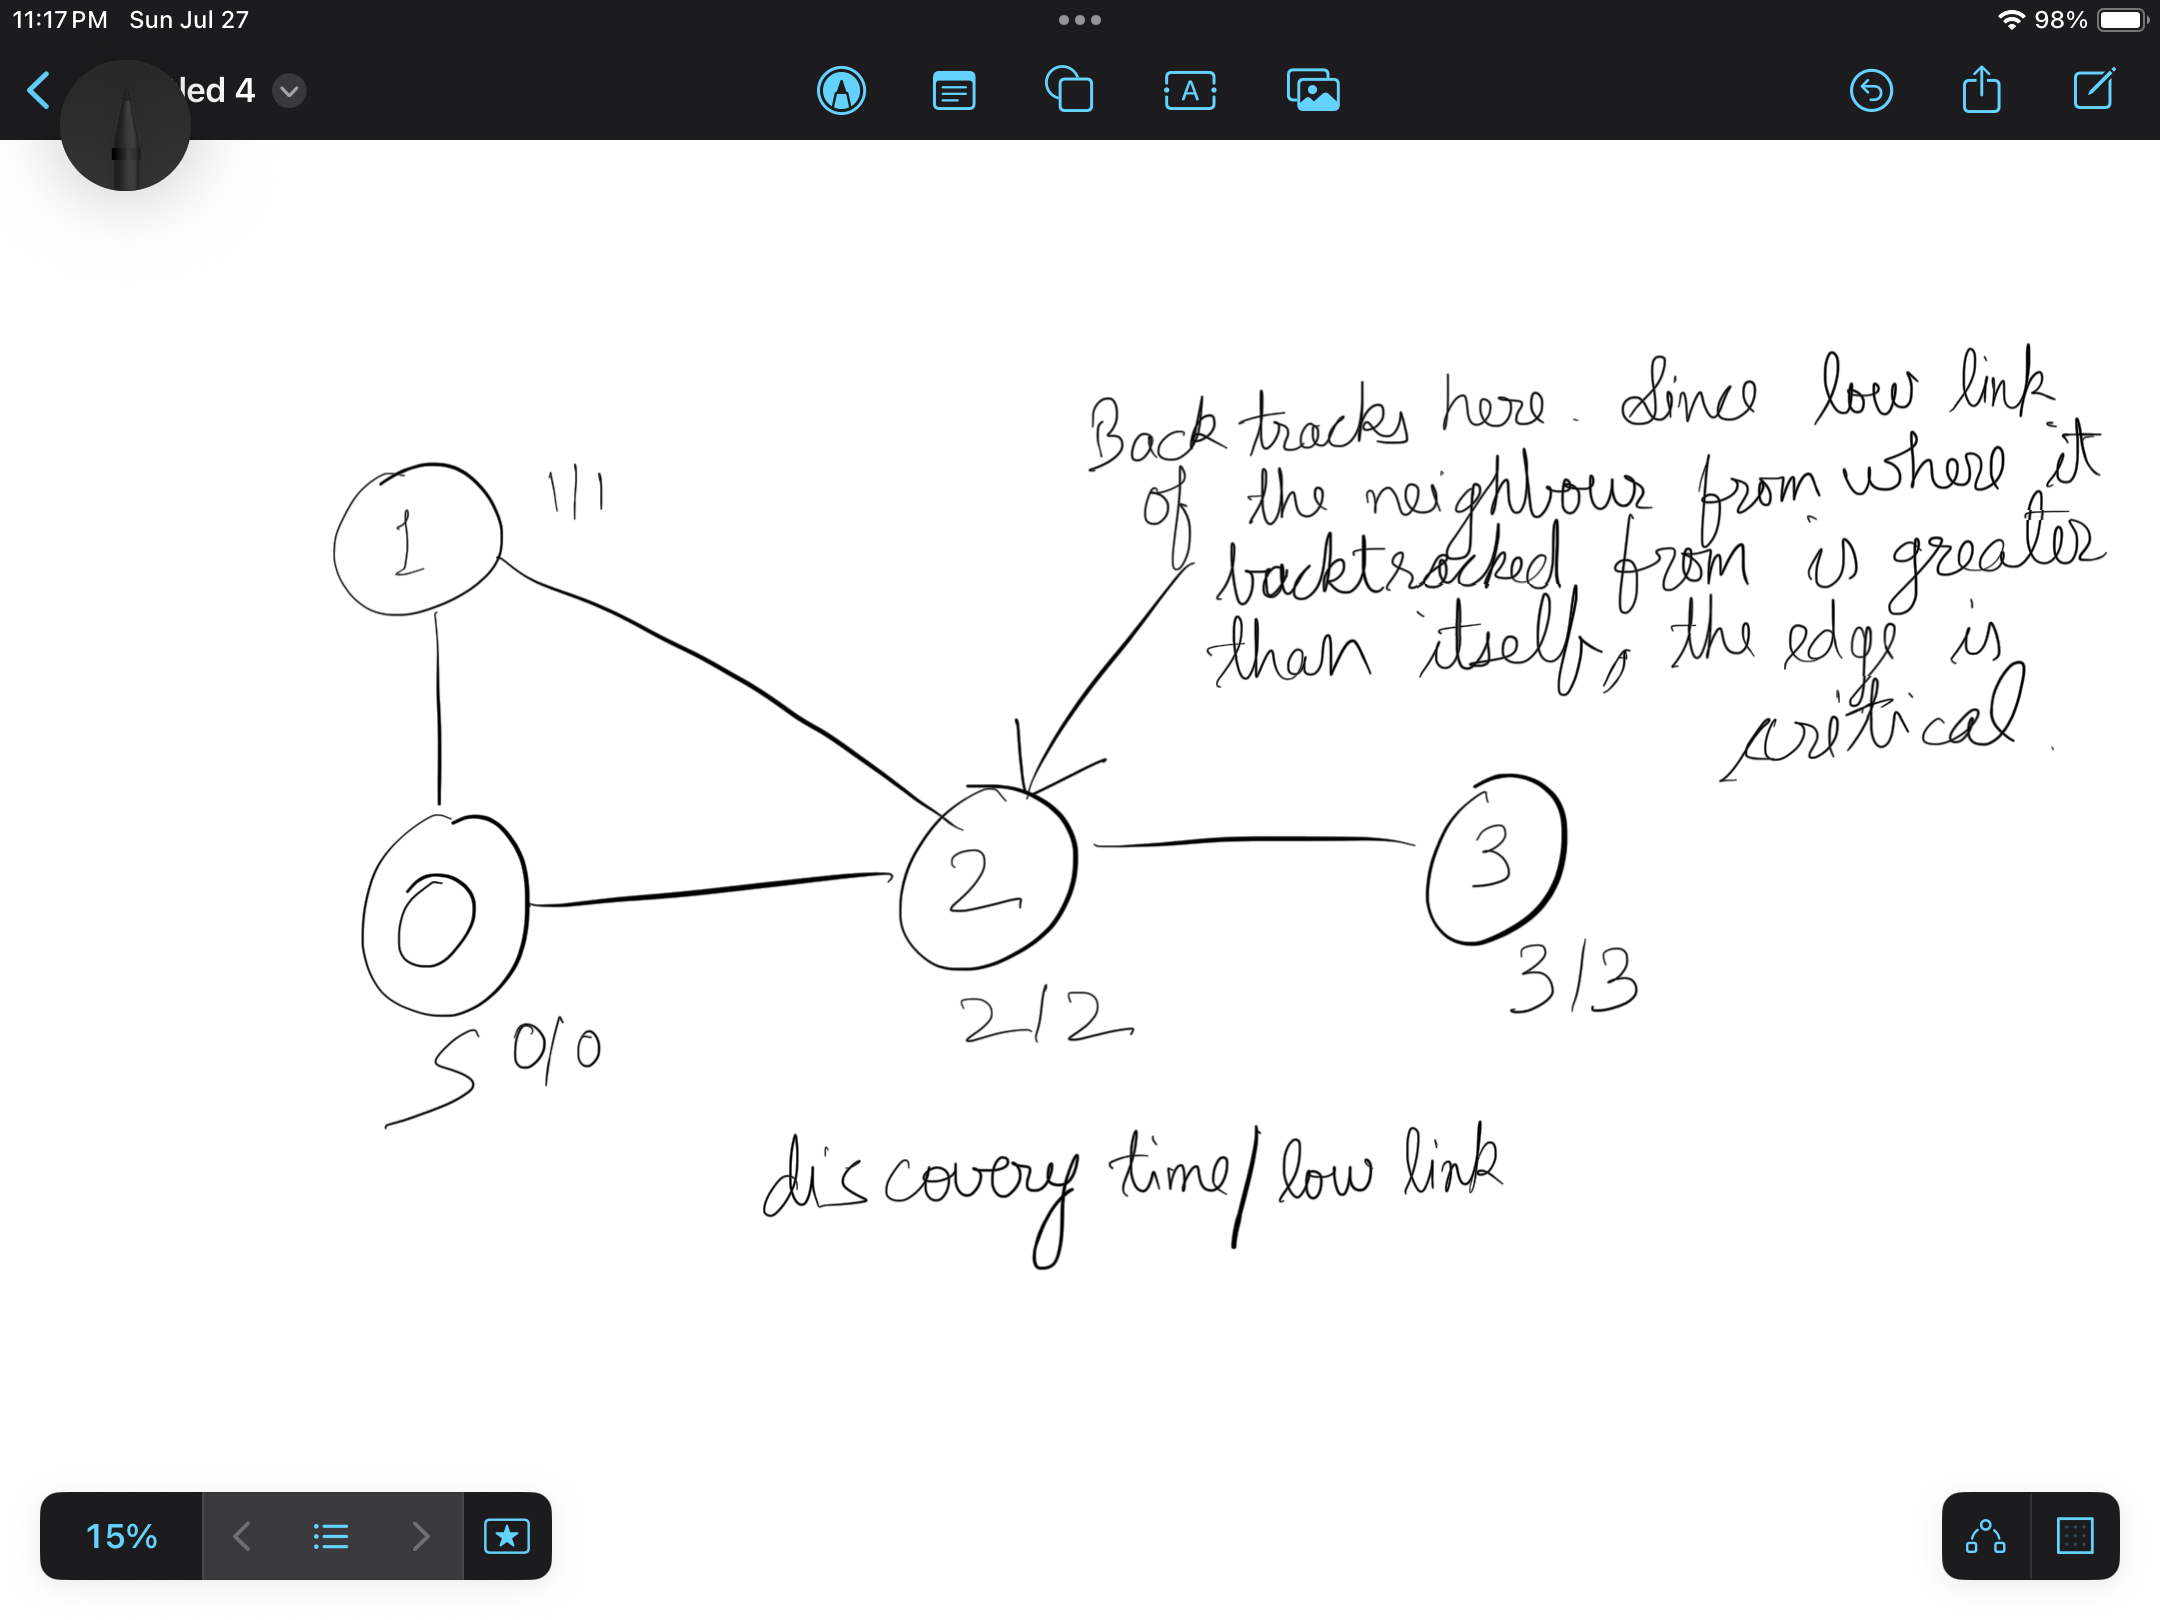 11:17 PM Sun Jul 27
98%
led 4
Back tracks here. Since low link
of the neighbour from where it
backtracked from is greater
than itself, the edge is
critical.
1
1/1
0
S 0/0
2
2/2
3
3/3
discovery time/low link
15%